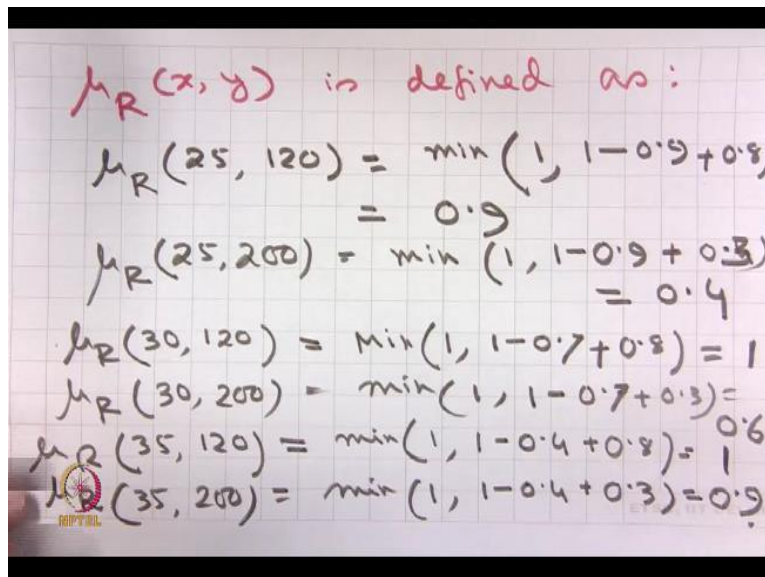 μR (x, y) is defined as:
μR (25, 120) = min (1, 1-0.9+0.8)
= 0.9
μR (25, 200) = min (1, 1-0.9 + 0.3)
= 0.4
μR (30, 120) = Min (1, 1-0.7+0.8) = 1
μR (30, 200) = min (1, 1-0.7+0.3) =
0.6
μR (35, 120) = min (1, 1-0.4+0.8) = 1
μR (35, 200) = min (1, 1-0.4+0.3) = 0.9
NPTEL